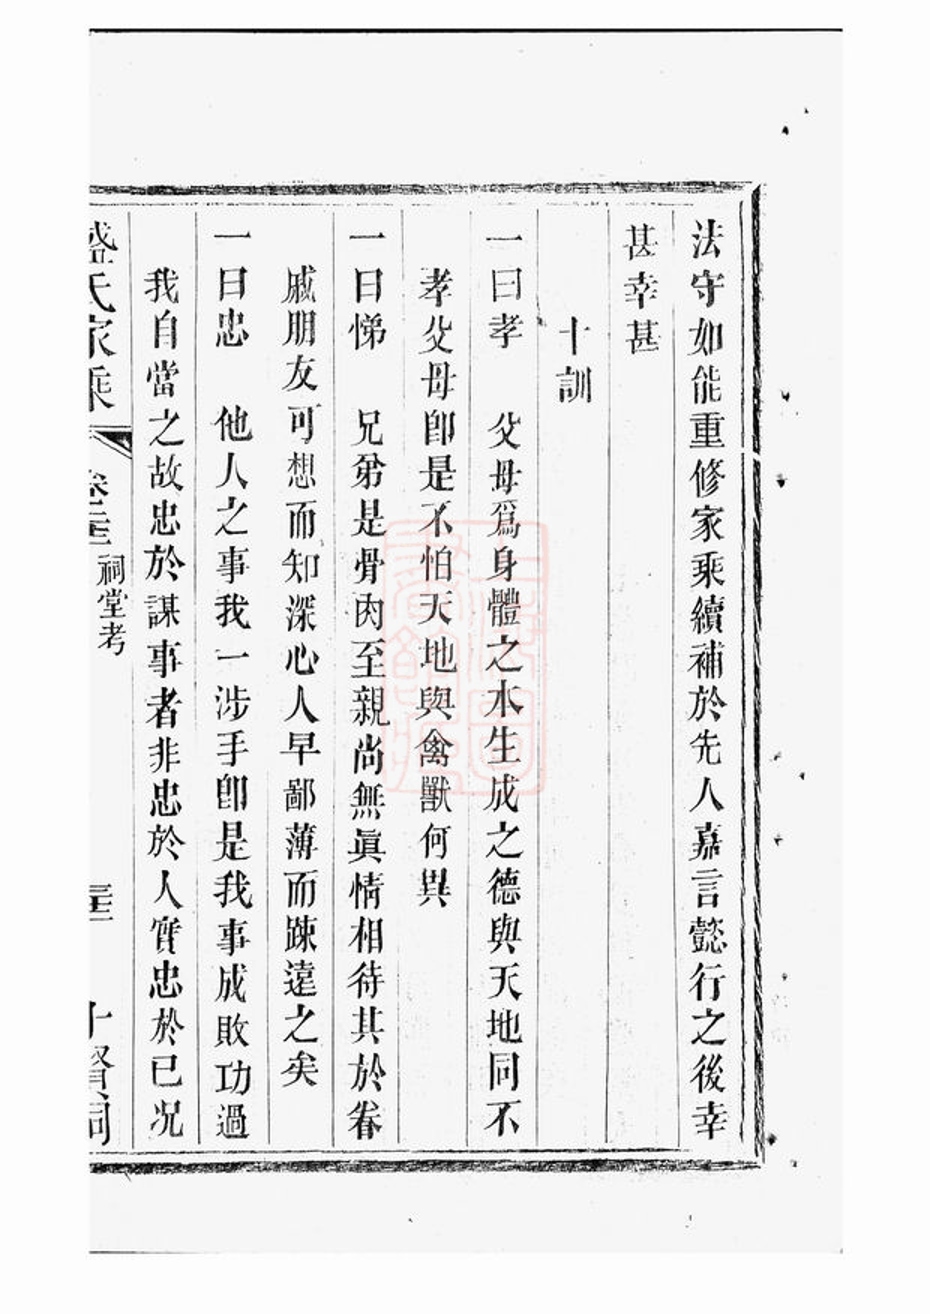 法守如能重修家乘續補於先人嘉言懿行之後幸
甚幸甚
十訓
一曰孝　父母爲身體之本生成之德與天地同不
孝父母卽是不怕天地與禽獸何異
一曰悌　兄弟是骨肉至親尚無眞情相待其於眷
戚朋友可想而知深心人早鄙薄而踈遠之矣
一曰忠　他人之事我一涉手卽是我事成敗功過
我自當之故忠於謀事者非忠於人實忠於已况
盛氏家乘
祠堂考